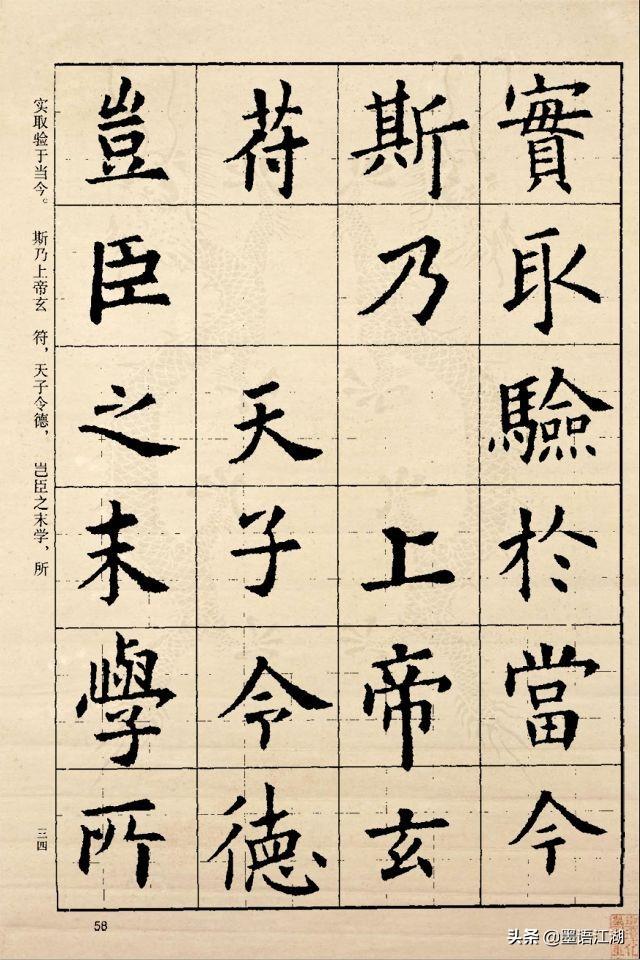 實取驗於當今
斯乃上帝玄
苻天子令德
豈臣之末學所
实取验于当今。 斯乃上帝玄 符，天子令德， 岂臣之末学，所
三四
58
头条 @墨语江湖